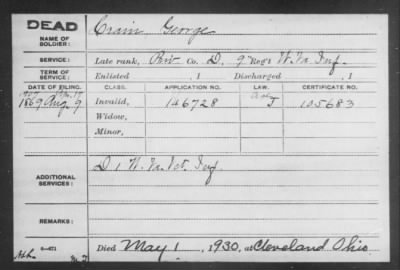 DEAD
NAME OF SOLDIER: Crain George
SERVICE: Late rank, Priv Co. D, 9" Reg't W.Va. Inf.
TERM OF SERVICE: Enlisted , 1 Discharged , 1
DATE OF FILING. CLASS. APPLICATION NO. LAW. CERTIFICATE NO.
1869 Aug. 9 Invalid, 146728 J 105683
Widow,
Minor,
ADDITIONAL SERVICES: D 1 W. Va. Vet. Inf.
REMARKS:
Died May 1, 1930, at Cleveland Ohio